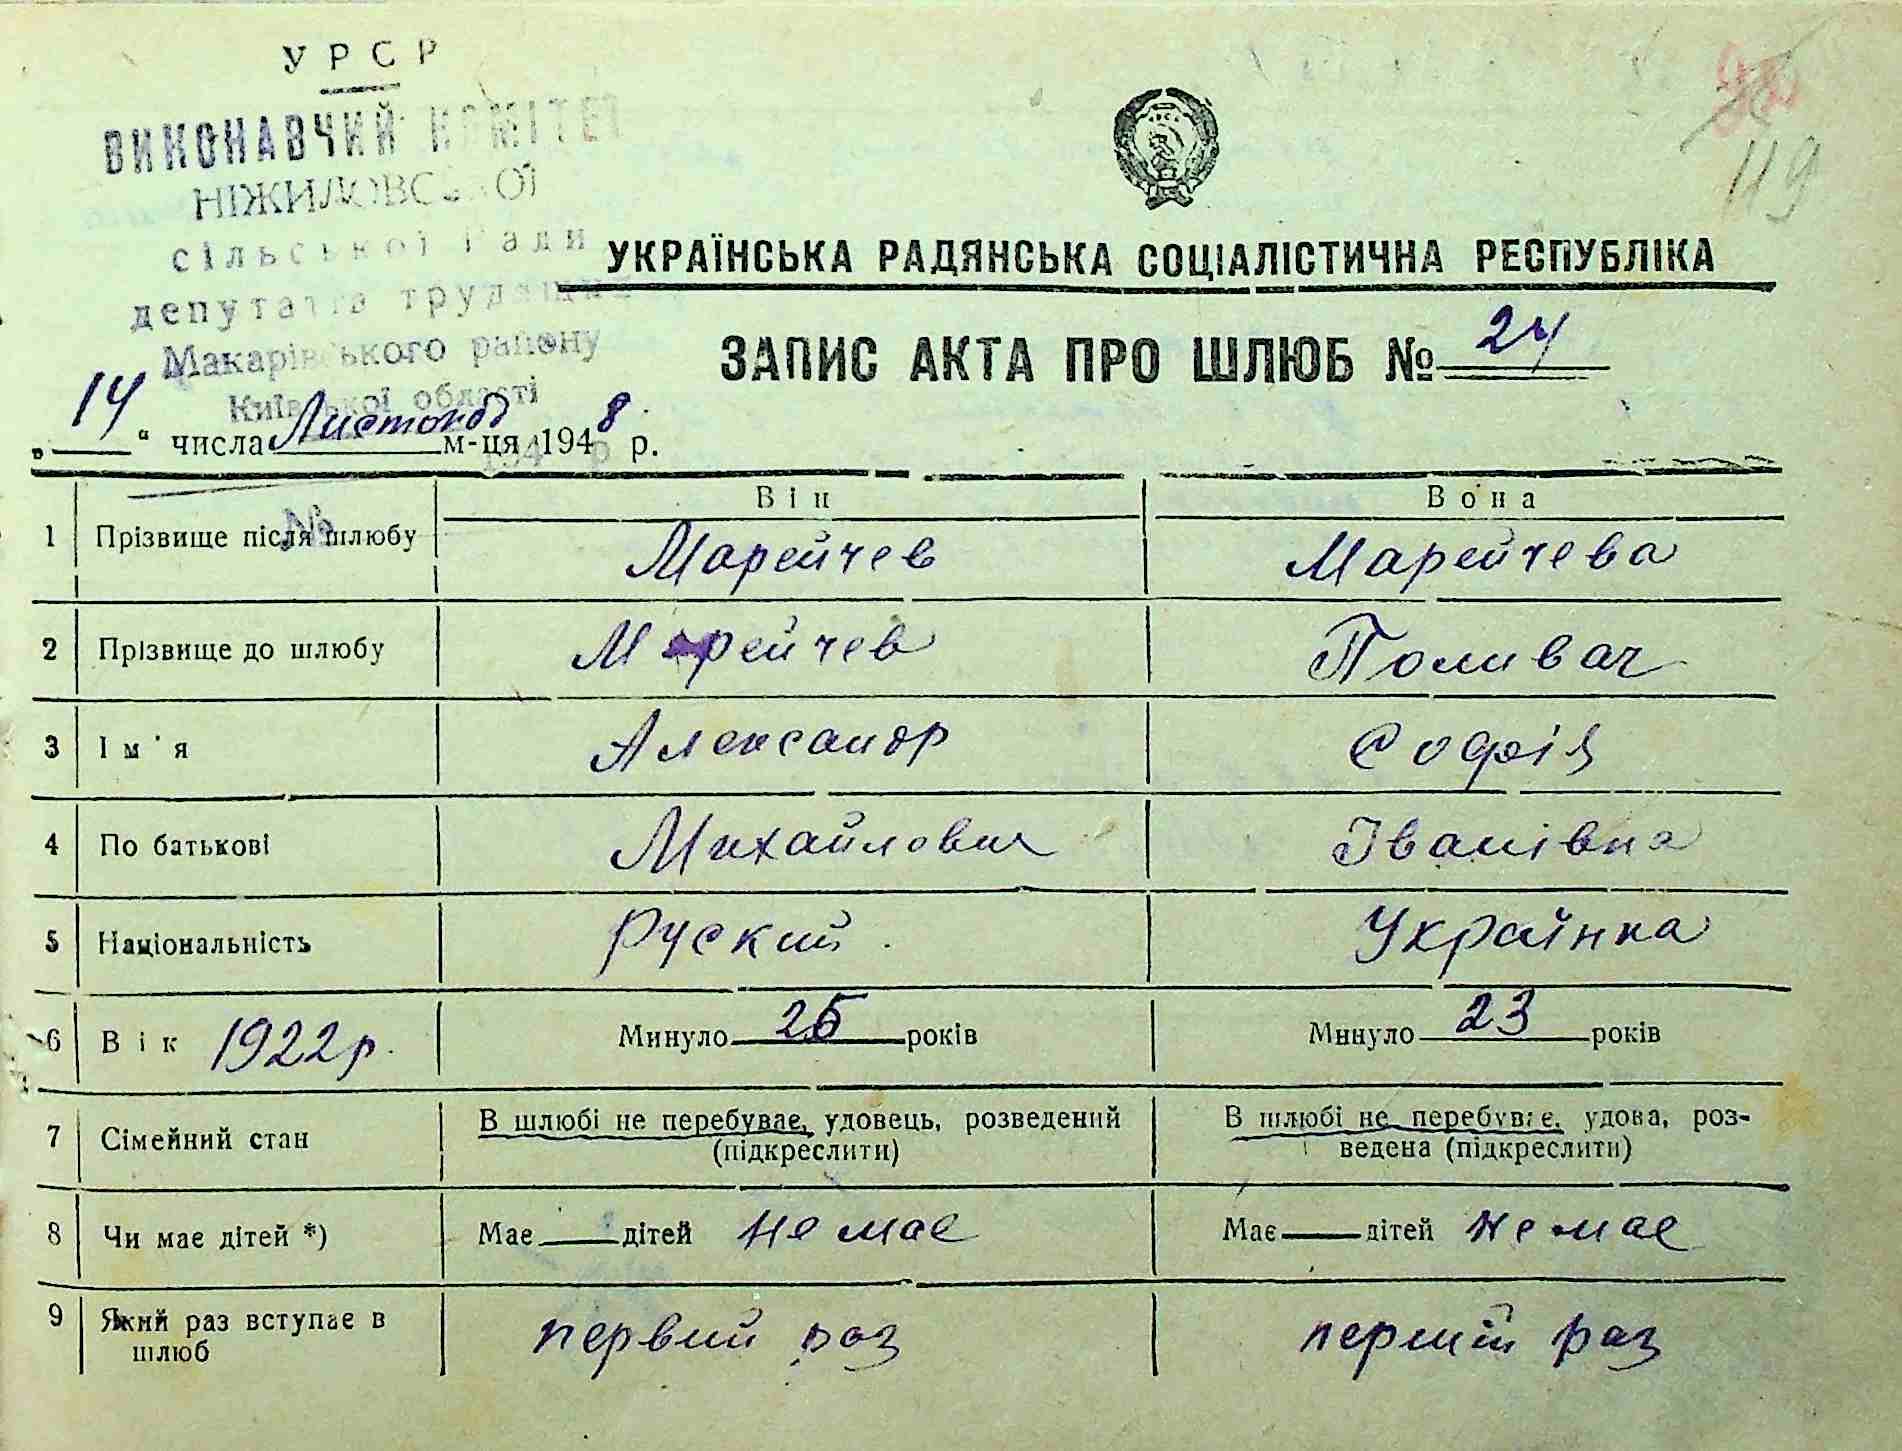 УРСР
ВИКОНАВЧИЙ КОМІТЕТ
НІЖИЛОВСЬКОЇ
сільської Ради
депутатів трудящих
Макарівського району
Київської області
119
УКРАЇНСЬКА РАДЯНСЬКА СОЦІАЛІСТИЧНА РЕСПУБЛІКА
ЗАПИС АКТА ПРО ШЛЮБ № 24
„14“ числа Листопад м-ця 1948 р.
№
Він Вона
1 Прізвище після шлюбу Марейчев Марейчева
2 Прізвище до шлюбу Марейчев Поливач
3 Ім'я Александр Софія
4 По батькові Михайлович Іванівна
5 Національність Руский Українка
6 Вік 1922 р. Минуло 25 років Минуло 23 років
7 Сімейний стан В шлюбі не перебуває, удовець, розведений (підкреслити) В шлюбі не перебуває, удова, роз-
ведена (підкреслити)
8 Чи має дітей *) Має дітей не має Має дітей не має
9 Який раз вступає в первий раз перший раз
шлюб